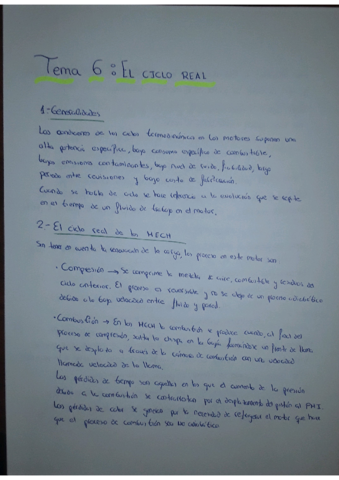 Tema 6: EL CICLO REAL
1-Generalidades
Las condiciones de los ciclos termodinámicos en los motores suponen una
alta potencia específica, bajo consumo específico de combustible,
bajas emisiones contaminantes, bajo nivel de ruido, fiabilidad, bajo
periodo entre revisiones y bajo coste de fabricación.
Cuando se habla de ciclo se hace referencia a la evolución que se repite
en el tiempo de un fluido de trabajo en el motor.
2-El ciclo real de los MECH
Sin tener en cuenta la renovación de la carga, los procesos en este motor son
· Compresión → Se comprime la mezcla de aire, combustible y residuos del
ciclo anterior. El proceso es reversible y no se aleja de un proceso adiabático
debido a la baja velocidad entre fluido y pared.
· Combustión → En los MECH la combustión se produce cuando, al final del
proceso de compresión, salta la chispa en la bujía formándose un frente de llama
que se desplaza a través de la cámara de combustión con una velocidad
llamada velocidad de la llama.
Las pérdidas de tiempo son aquellas en las que el aumento de la presión
debido a la combustión se contrarresta por el desplazamiento del pistón al PMI.
Las pérdidas de calor se generan por la necesidad de refrigerar el motor que hace
que el proceso de combustión sea no adiabático